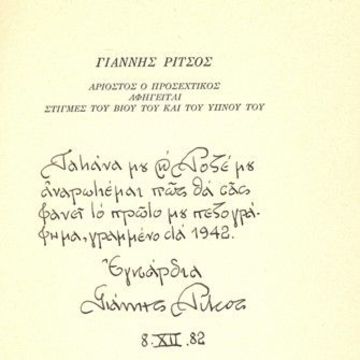 ΓΙΑΝΝΗΣ ΡΙΤΣΟΣ
ΑΡΙΟΣΤΟΣ Ο ΠΡΟΣΕΧΤΙΚΟΣ
ΑΦΗΓΕΙΤΑΙ
ΣΤΙΓΜΕΣ ΤΟΥ ΒΙΟΥ ΤΟΥ ΚΑΙ ΤΟΥ ΥΠΝΟΥ ΤΟΥ
Τατιάνα μου Ροζέ μου
ἀναρωτιέμαι πῶς θὰ σᾶς
φανεῖ τὸ πρῶτο μου πεζογρά-
φημα, γραμμένο στὰ 1942.
Ἐγκάρδια
Γιάννης Ρίτσος
8.XII.82